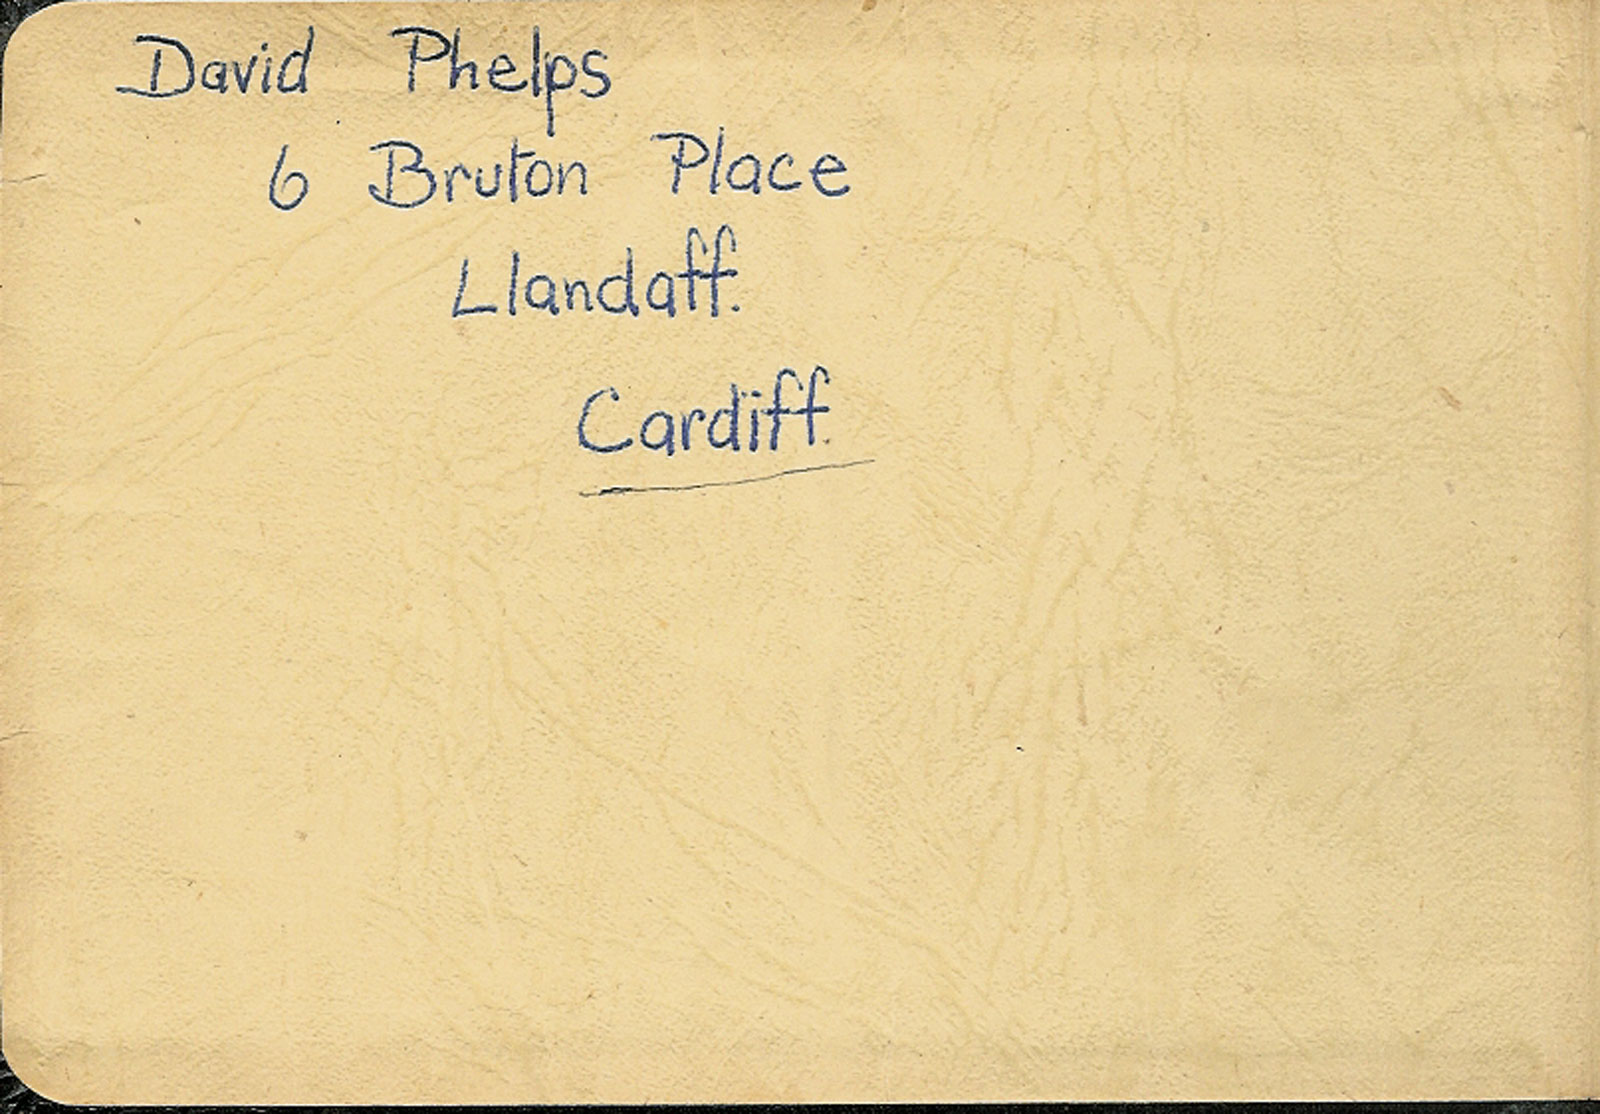 David Phelps
6 Bruton Place
Llandaff.
Cardiff.